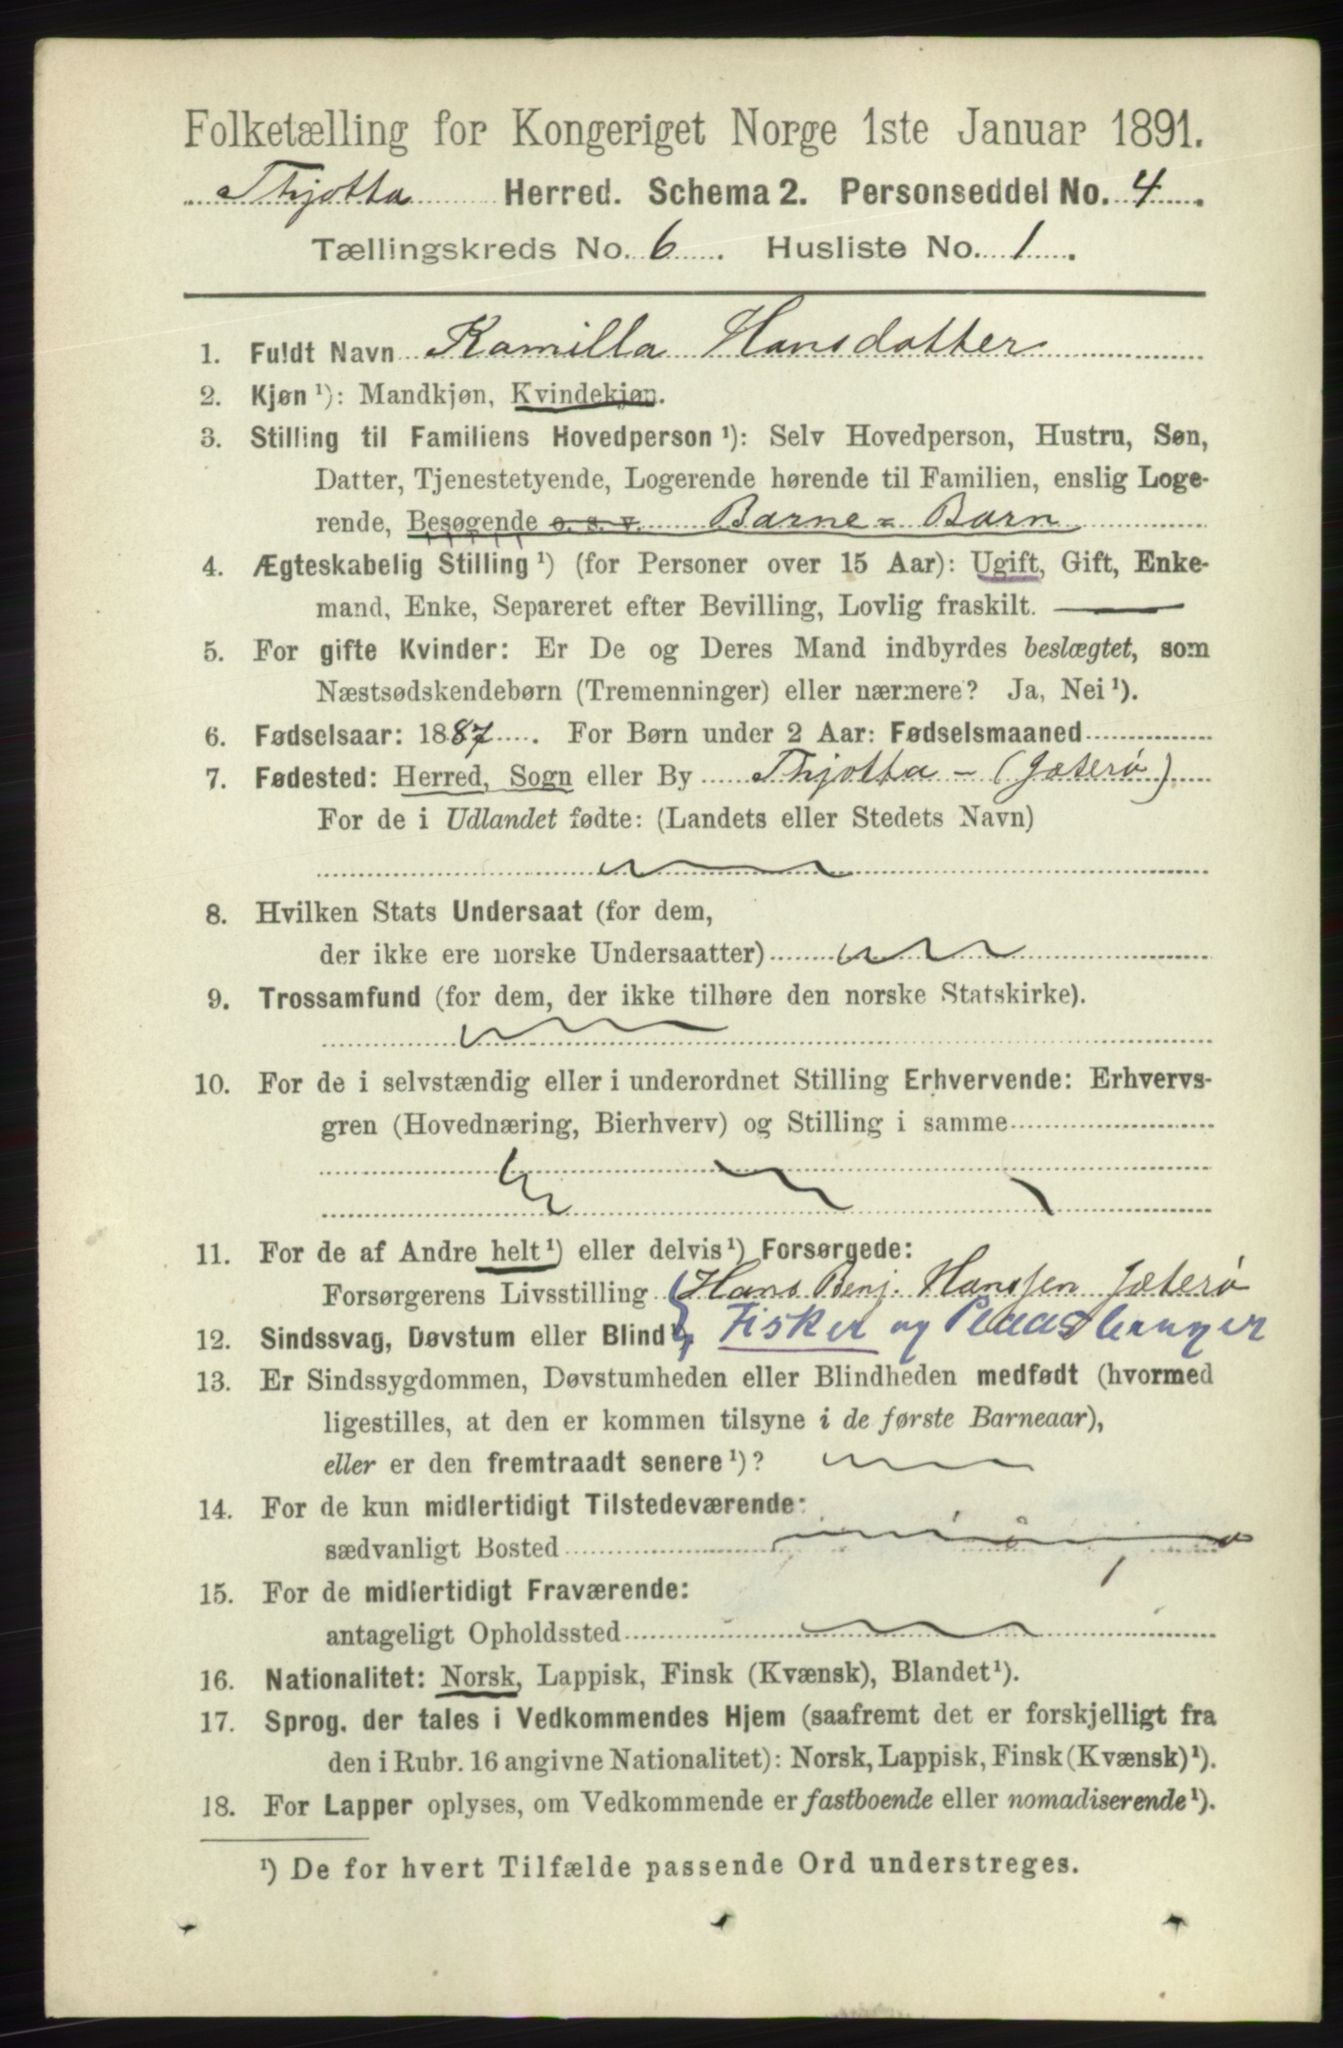 Folketælling for Kongeriget Norge 1ste Januar 1891.
Thjotta Herred. Schema 2. Personseddel No. 4.
Tællingskreds No. 6. Husliste No. 1.
1. Fuldt Navn Kamilla Hansdatter
2. Kjøn ¹): Mandkjøn, Kvindekjøn.
3. Stilling til Familiens Hovedperson ¹): Selv Hovedperson, Hustru, Søn,
Datter, Tjenestetyende, Logerende hørende til Familien, enslig Loge-
rende, Besøgende o. s. v. Barne-Barn
4. Ægteskabelig Stilling ¹) (for Personer over 15 Aar): Ugift, Gift, Enke-
mand, Enke, Separeret efter Bevilling, Lovlig fraskilt.
5. For gifte Kvinder: Er De og Deres Mand indbyrdes beslægtet, som
Næstsødskendebørn (Tremenninger) eller nærmere? Ja, Nei ¹).
6. Fødselsaar: 1887. For Børn under 2 Aar: Fødselsmaaned
7. Fødested: Herred, Sogn eller By Thjotta - (Jæterø)
For de i Udlandet fødte: (Landets eller Stedets Navn)
8. Hvilken Stats Undersaat (for dem,
der ikke ere norske Undersaatter)
9. Trossamfund (for dem, der ikke tilhøre den norske Statskirke).
10. For de i selvstændig eller i underordnet Stilling Erhvervende: Erhvervs-
gren (Hovednæring, Bierhverv) og Stilling i samme
11. For de af Andre helt ¹) eller delvis ¹) Forsørgede:
Forsørgerens Livsstilling Hans Benj. Hanssen Jæterø
12. Sindssvag, Døvstum eller Blind ¹). Fisker og Pladsbruger
13. Er Sindssygdommen, Døvstumheden eller Blindheden medfødt (hvormed
ligestilles, at den er kommen tilsyne i de første Barneaar),
eller er den fremtraadt senere ¹)?
14. For de kun midlertidigt Tilstedeværende:
sædvanligt Bosted
15. For de midlertidigt Fraværende:
antageligt Opholdssted
16. Nationalitet: Norsk, Lappisk, Finsk (Kvænsk), Blandet ¹).
17. Sprog, der tales i Vedkommendes Hjem (saafremt det er forskjelligt fra
den i Rubr. 16 angivne Nationalitet): Norsk, Lappisk, Finsk (Kvænsk) ¹).
18. For Lapper oplyses, om Vedkommende er fastboende eller nomadiserende ¹).
¹) De for hvert Tilfælde passende Ord understreges.